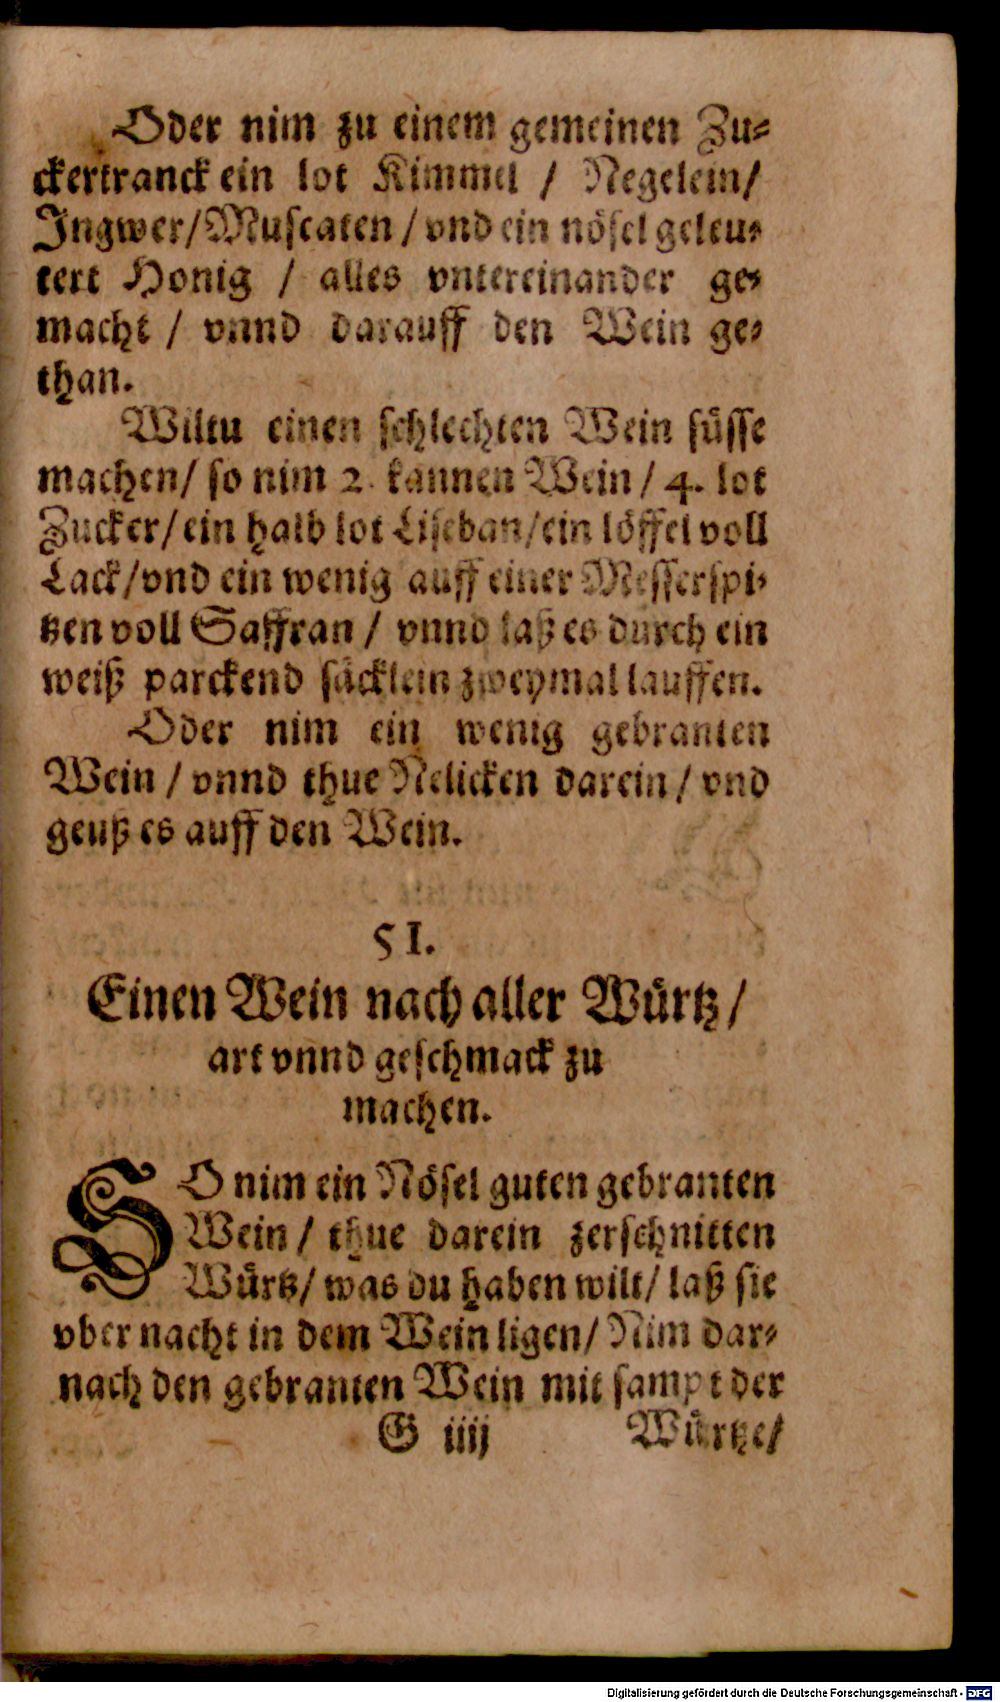 Oder nim zu einem gemeinen Zu⸗
ckertranck ein lot Kimmel / Negelein/
Ingwer/Muscaten / vnd ein nösel geleu⸗
tert Honig / alles vntereinander ge⸗
macht / vnnd darauff den Wein ge⸗
than.
Wiltu einen schlechten Wein süsse
machen/ so nim 2. kannen Wein / 4. lot
Zucker/ ein halb lot Liseban/ein löffel voll
Lack/vnd ein wenig auff einer Messerspi⸗
tzen voll Saffran / vnnd laß es durch ein
weiß parckend säcklein zweymal lauffen.
Oder nim ein wenig gebranten
Wein / vnnd thue Nelicken darein / vnd
geuß es auff den Wein.
51.
Einen Wein nach aller Würtz /
art vnnd geschmack zu
machen.
SO nim ein Nösel guten gebranten
Wein / thue darein zerschnitten
Würtz/ was du haben wilt/ laß sie
vber nacht in dem Wein ligen/ Nim dar⸗
nach den gebranten Wein mit sampt der
G iiij Würtze/
Digitalisierung gefördert durch die Deutsche Forschungsgemeinschaft - DFG